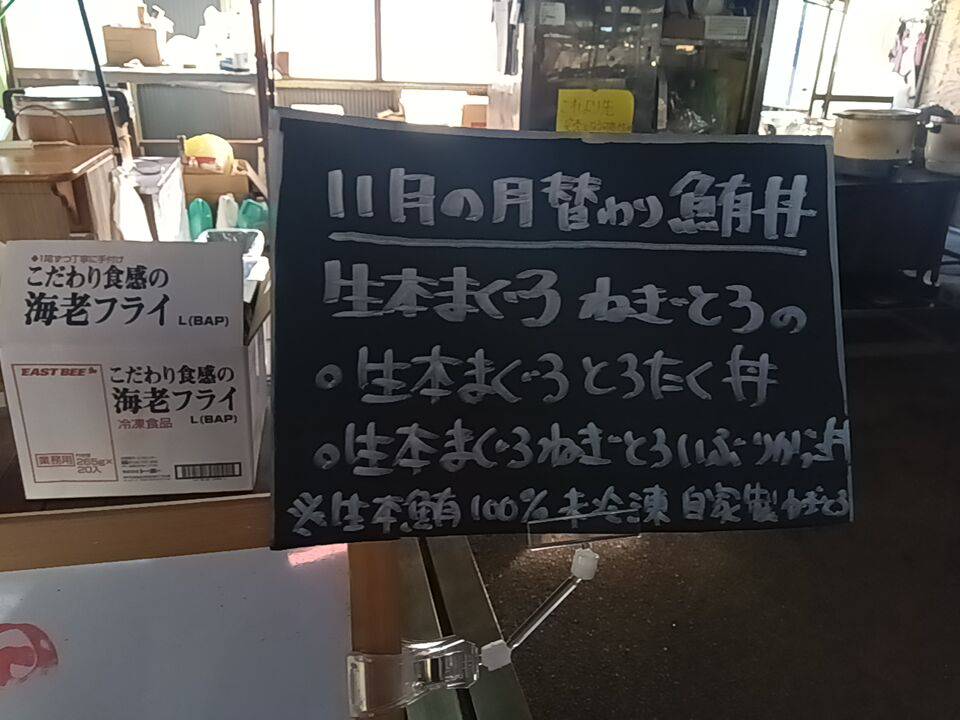 これより先
11月の月替わり鮪丼
生本まぐろねぎとろの
○生本まぐろとろたく丼
○生本まぐろねぎとろいぶりがっ丼
※生本鮪100%未冷凍自家製ねぎとろ
◆1尾ずつ丁寧に手付け
こだわり食感の
海老フライ L(BAP)
EAST BEE
こだわり食感の
海老フライ
L(BAP)
冷凍食品
業務用
265g×
20入